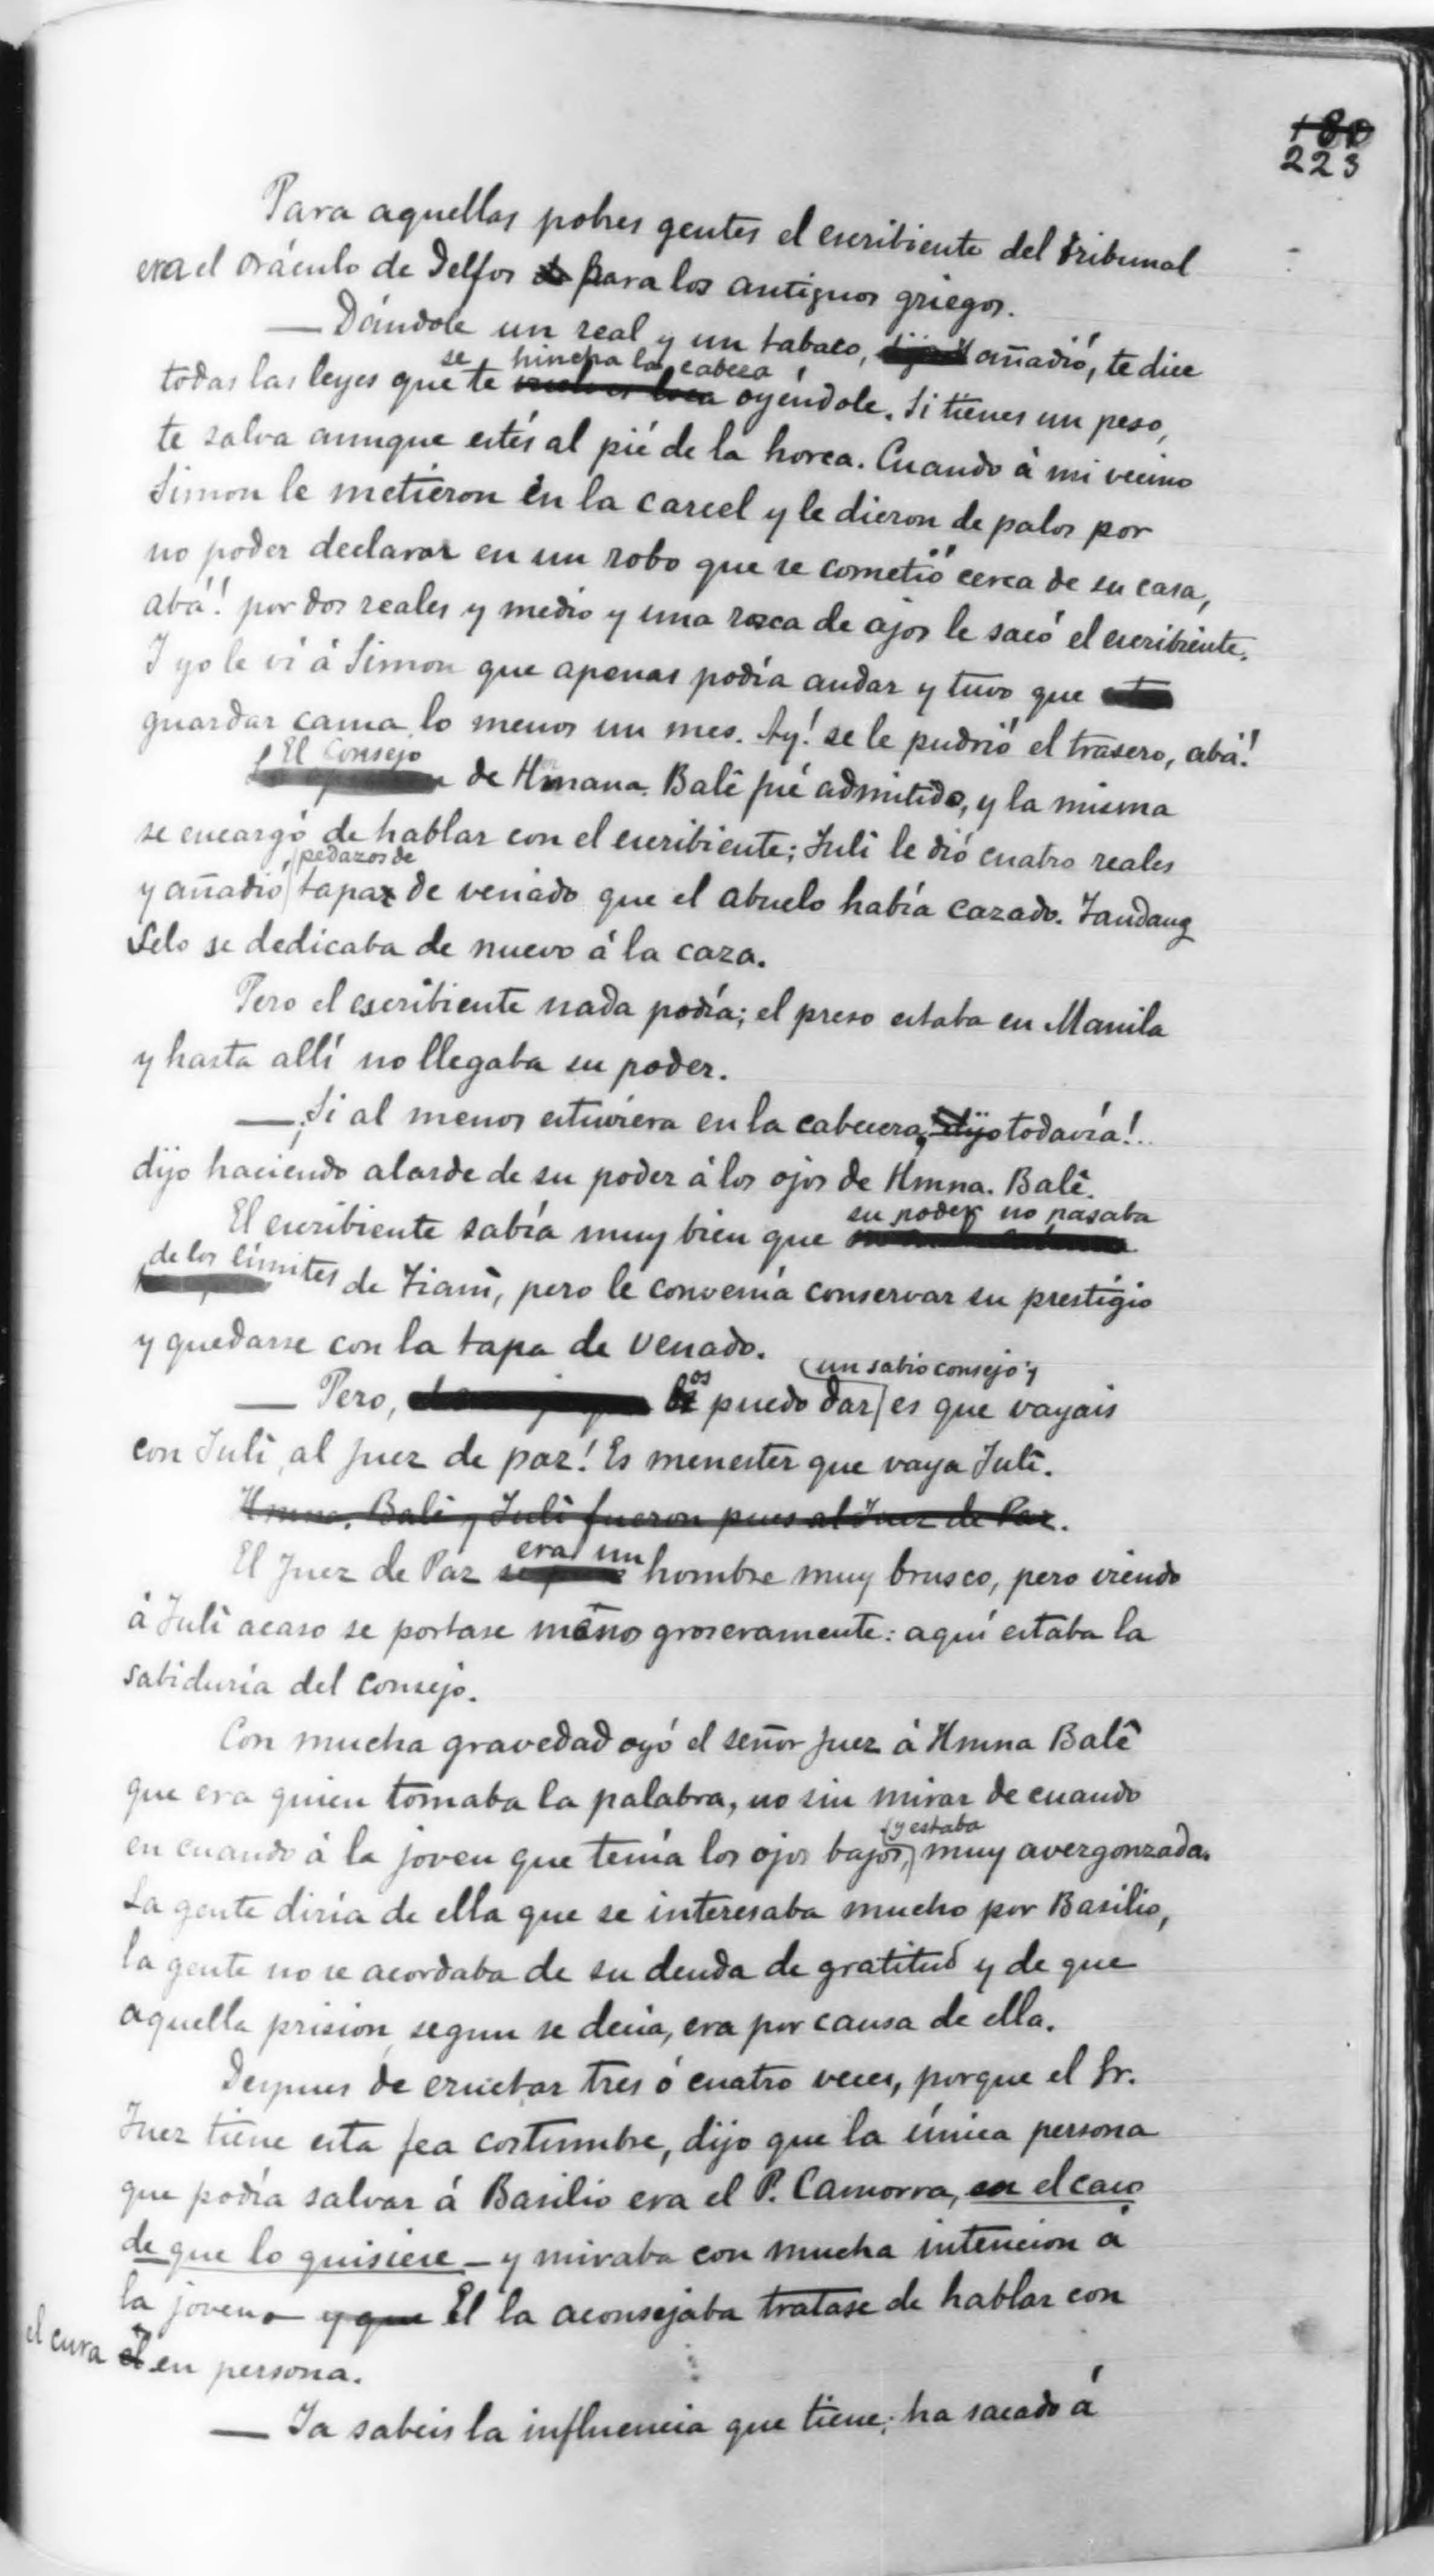 180
223
Para aquellas pobres gentes el escribiente del tribunal
era el oráculo de Delfos para los antiguos griegos.
— Dándole un real y un tabaco, añadió, te dice
se hincha la cabeza
todas las leyes que te oyéndole. Si tienes un peso,
te salva aunque estés al pié de la horca. Cuando á mi vecino
Simon le metieron en la carcel y le dieron de palos por
no poder declarar en un robo que se cometió cerca de su casa,
abá! por dos reales y medio y una rosca de ajos le sacó el escribiente.
Y yo le ví á Simon que apenas podía andar y tuvo que
guardar cama lo menos un mes. Ay! se le pudrió el trasero, abá!
El Consejo
de Hmana. Balî fué admitido, y la misma
se encargó de hablar con el escribiente; Julî le dió cuatro reales
pedazos de
y añadió tapa de venado que el abuelo había cazado. Tandang
Selo se dedicaba de nuevo á la caza.
Pero el escribiente nada podía; el preso estaba en Manila
y hasta allí no llegaba su poder.
— ¡Si al menos estuviera en la cabecera, dijo todavía!..
dijo haciendo alarde de su poder á los ojos de Hmna. Balî.
su poder no pasaba
El escribiente sabía muy bien que
de los límites de Tianì, pero le convenía conservar su prestigio
y quedarse con la tapa de venado.
un sabio consejo y
os
— Pero, puedo dar es que vayais
con Julî al juez de paz! Es menester que vaya Julî.
Hmna. Balî y Julî fueron pues al Juez de Paz.
era un
El Juez de Paz hombre muy brusco, pero viendo
á Julî acaso se portase menos groseramente: aquí estaba la
sabiduría del consejo.
Con mucha gravedad oyó el señor juez á Hmna Balî
que era quien tomaba la palabra, no sin mirar de cuando
y estaba
en cuando á la joven que tenía los ojos bajos, muy avergonzada.
La gente diría de ella que se interesaba mucho por Basilio,
la gente no se acordaba de su deuda de gratitud y de que
aquella prision, segun se decía, era por causa de ella.
Despues de eructar tres ó cuatro veces, porque el Sr.
Juez tiene esta fea costumbre, dijo que la única persona
que podía salvar á Basilio era el P. Camorra, en el caso
de que lo quisiese — y miraba con mucha intencion á
la joven — y que El la aconsejaba tratase de hablar con
el cura él en persona.
— Ya sabeis la influencia que tiene; ha sacado á